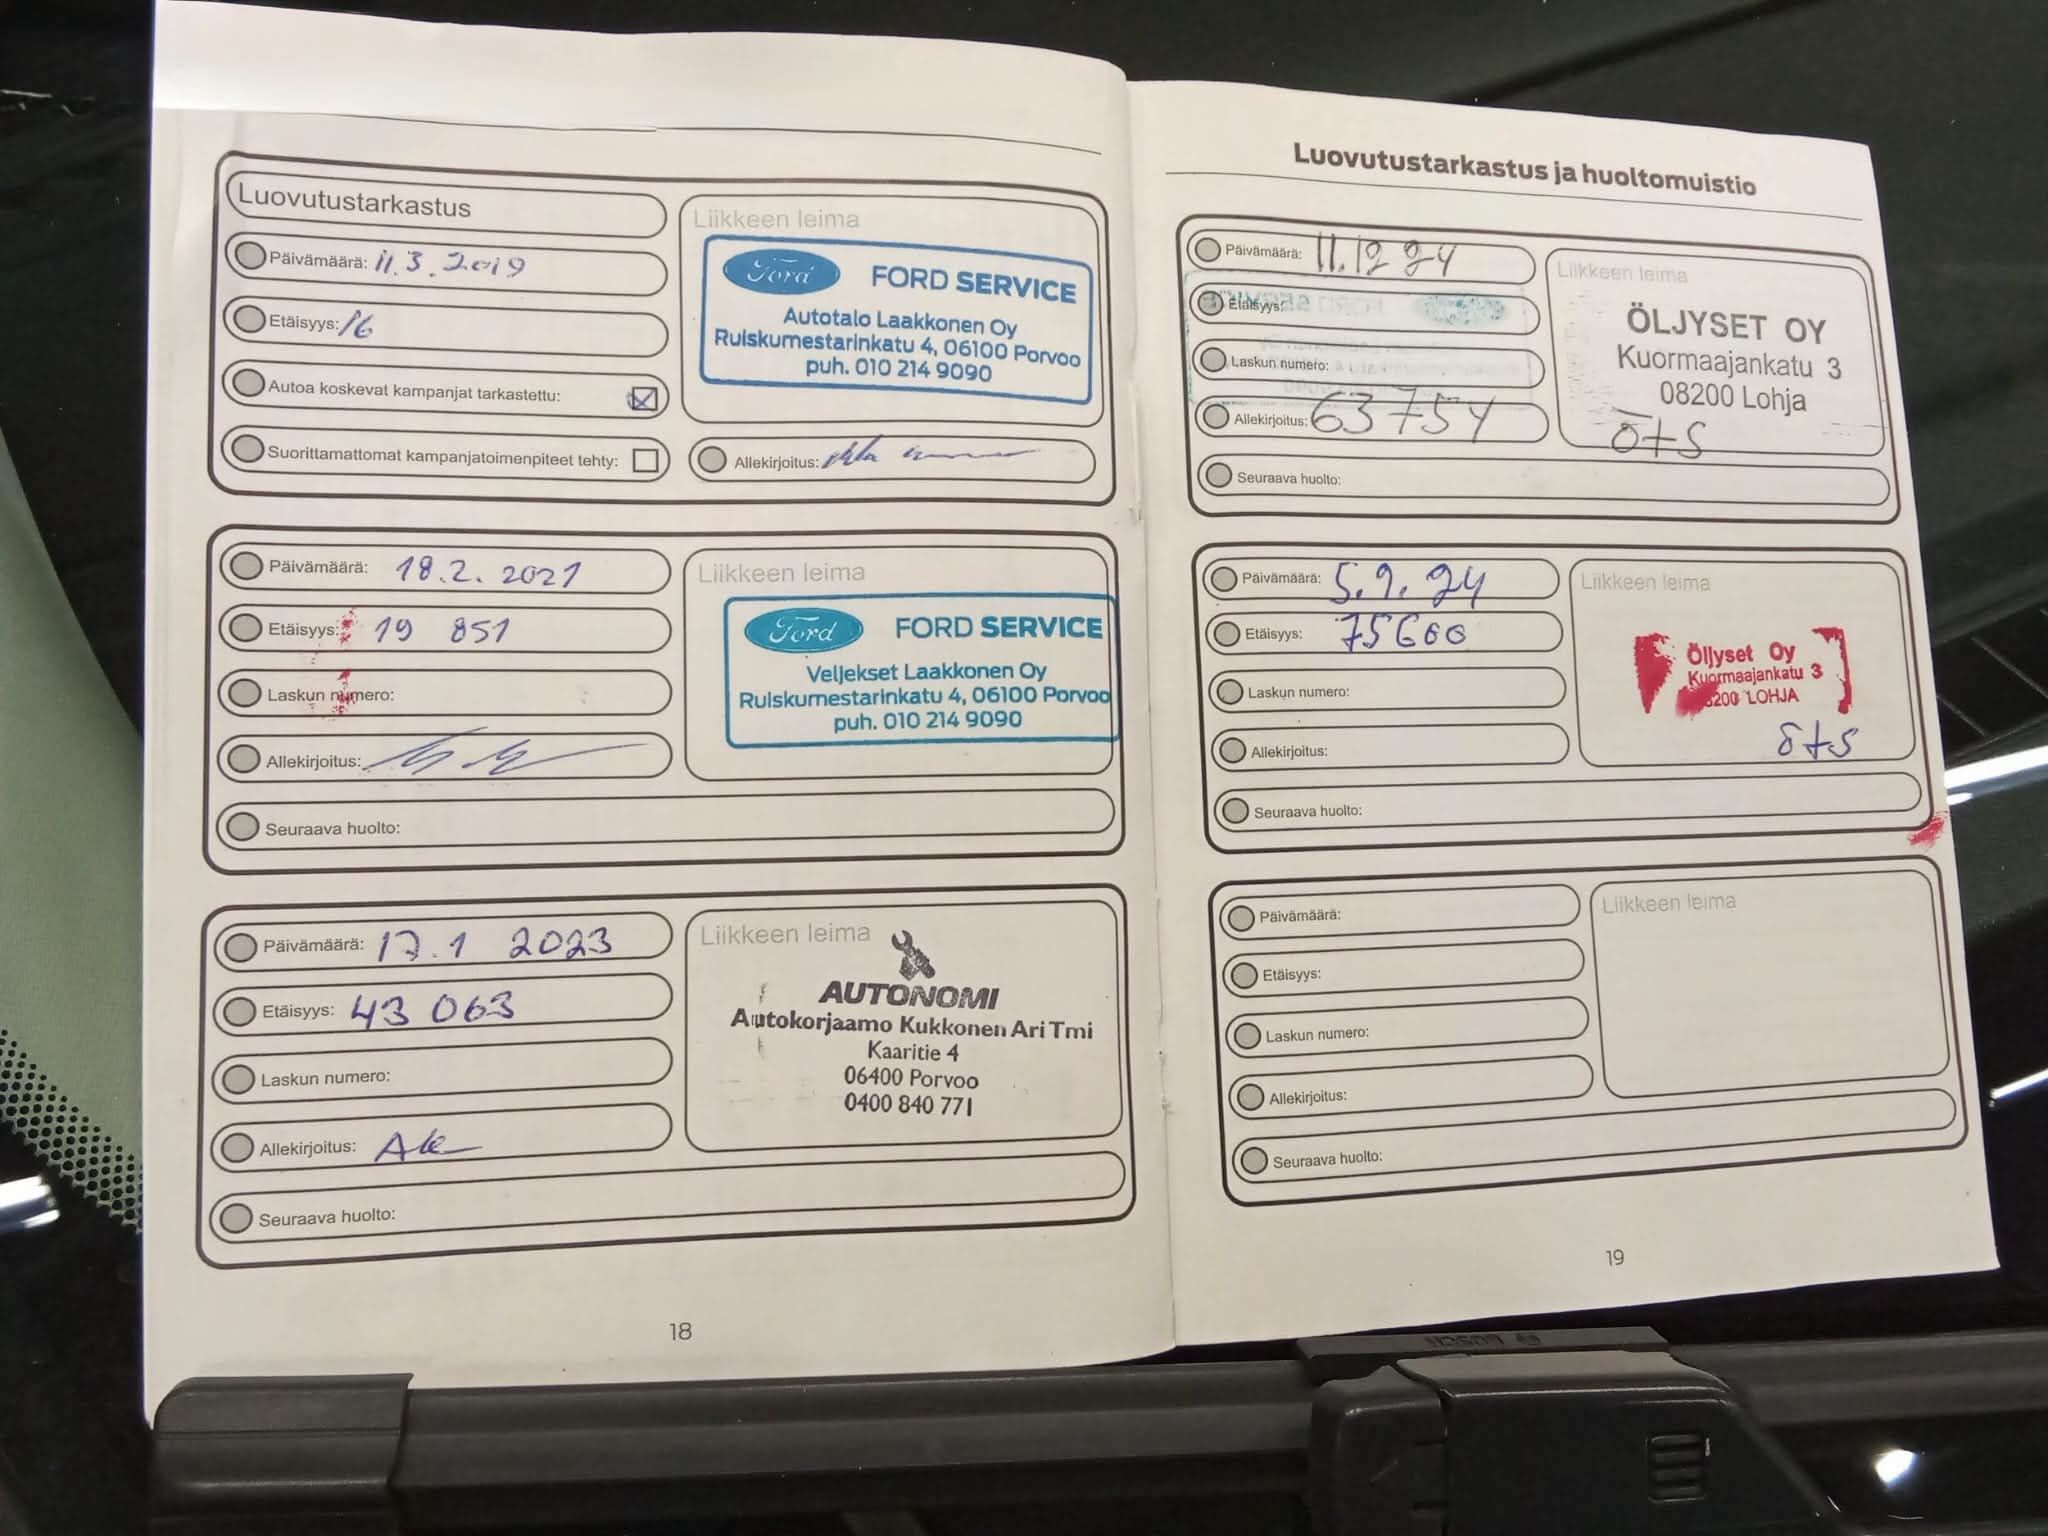 Luovutustarkastus
Päivämäärä: 11.3.2019
Etäisyys: 16
Autoa koskevat kampanjat tarkastettu:
Suorittamattomat kampanjatoimenpiteet tehty:
Liikkeen leima
Ford FORD SERVICE
Autotalo Laakkonen Oy
Ruiskumestarinkatu 4, 06100 Porvoo
puh. 010 214 9090
Allekirjoitus:
Päivämäärä: 18.2.2021
Etäisyys: 19 851
Laskun numero:
Allekirjoitus:
Seuraava huolto:
Liikkeen leima
Ford FORD SERVICE
Veljekset Laakkonen Oy
Ruiskumestarinkatu 4, 06100 Porvoo
puh. 010 214 9090
Päivämäärä: 17.1 2023
Etäisyys: 43 063
Laskun numero:
Allekirjoitus:
Seuraava huolto:
Liikkeen leima
AUTONOMI
Autokorjaamo Kukkonen Ari Tmi
Kaaritie 4
06400 Porvoo
0400 840 771
18
Luovutustarkastus ja huoltomuistio
Päivämäärä: 11.12 24
Etäisyys:
Laskun numero:
Allekirjoitus: 63754
Seuraava huolto:
Liikkeen leima
ÖLJYSET OY
Kuormaajankatu 3
08200 Lohja
öts
Päivämäärä: 5.9.24
Etäisyys: 75600
Laskun numero:
Allekirjoitus:
Seuraava huolto:
Liikkeen leima
Öljyset Oy
Kuormaajankatu 3
8200 LOHJA
öts
Päivämäärä:
Etäisyys:
Laskun numero:
Allekirjoitus:
Seuraava huolto:
Liikkeen leima
19
BOSCH